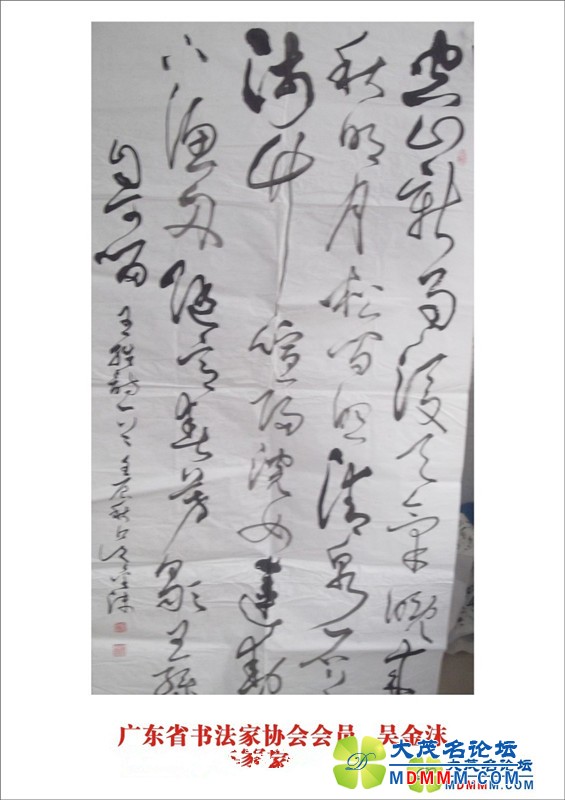 空山新雨後天氣晚来
秋明月松間照清泉石
流竹喧歸浣女蓮動
下漁舟隨意春芳歇王孫
自可留
王維詩一首
广东省书法家协会会员 吴金沫
大茂名论坛
MDMMM.COM